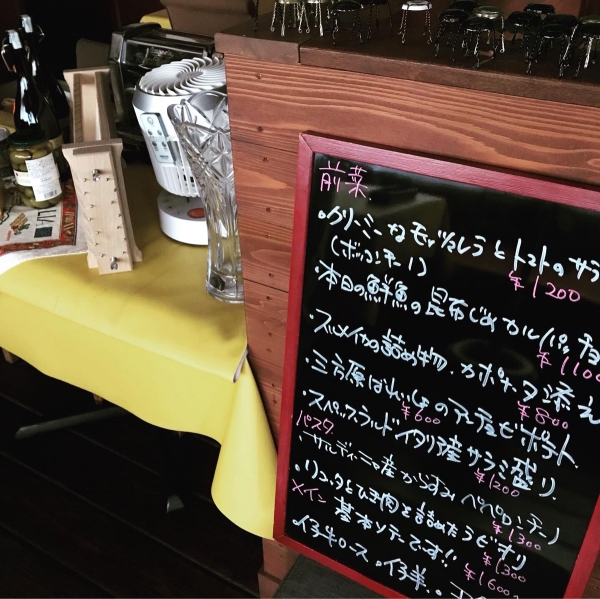 前菜
・クリーミーなモッツァレラとトマトのサラ
(ボッコンチーノ) ¥1200
・本日の鮮魚の昆布じめカルパッチョ
¥1100
・スルメイカの詰め物、カポナータ添え
¥800
・三方原ばれいしょの ポテト
¥600
・スペックラルド イタリア産サラミ盛り
¥1200
パスタ
・サルディニャ産からすみ ペペロンチーノ
¥1300
・リコッタとひき肉を詰めたラビオリ
¥1300
メイン 基本ソテーです!!
¥1600
・仔牛ロース ・仔羊